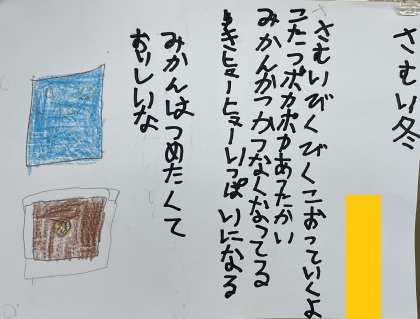 さむい冬
さむいびくびくこおっていくよ
こたつポカポカあったかい
みかんがつかつなくなってる
ゆきヒューヒューいっぱいになる
みかんはつめたくて
おいしいな